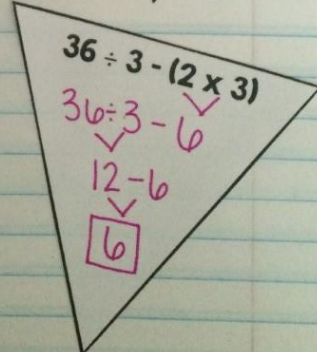 36 ÷ 3 - (2 x 3)
36÷3 - 6
12-6
6